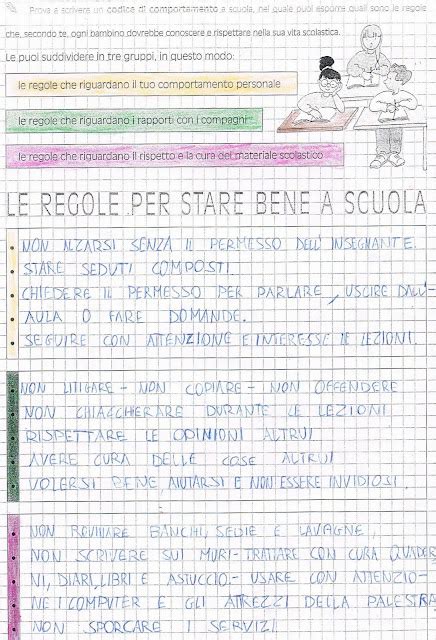 Prova a scrivere un codice di comportamento a scuola, nel quale puoi esporre quali sono le regole
che, secondo te, ogni bambino dovrebbe conoscere e rispettare nella sua vita scolastica.
Le puoi suddividere in tre gruppi, in questo modo:
le regole che riguardano il tuo comportamento personale
le regole che riguardano i rapporti con i compagni
le regole che riguardano il rispetto e la cura del materiale scolastico
LE REGOLE PER STARE BENE A SCUOLA
• NON ALZARSI SENZA IL PERMESSO DELL'INSEGNANTE.
• STARE SEDUTI COMPOSTI.
• CHIEDERE IL PERMESSO PER PARLARE, USCIRE DALL'-
• AULA O FARE DOMANDE.
• SEGUIRE CON ATTENZIONE E INTERESSE LE LEZIONI.
• NON LITIGARE - NON COPIARE - NON OFFENDERE
• NON CHIACCHERARE DURANTE LE LEZIONI
• RISPETTARE LE OPINIONI ALTRUI
• AVERE CURA DELLE COSE ALTRUI
• VOLERSI BENE, AIUTARSI E NON ESSERE INVIDIOSI.
• NON ROVINARE BANCHI, SEDIE E LAVAGNE,
• NON SCRIVERE SUI MURI - TRATTARE CON CURA QUADER
• NI, DIARI, LIBRI E ASTUCCIO. - USARE CON ATTENZIO-
• NE I COMPUTER E GLI ATREZZI DELLA PALESTRA
• NON SPORCARE I SERVIZI.